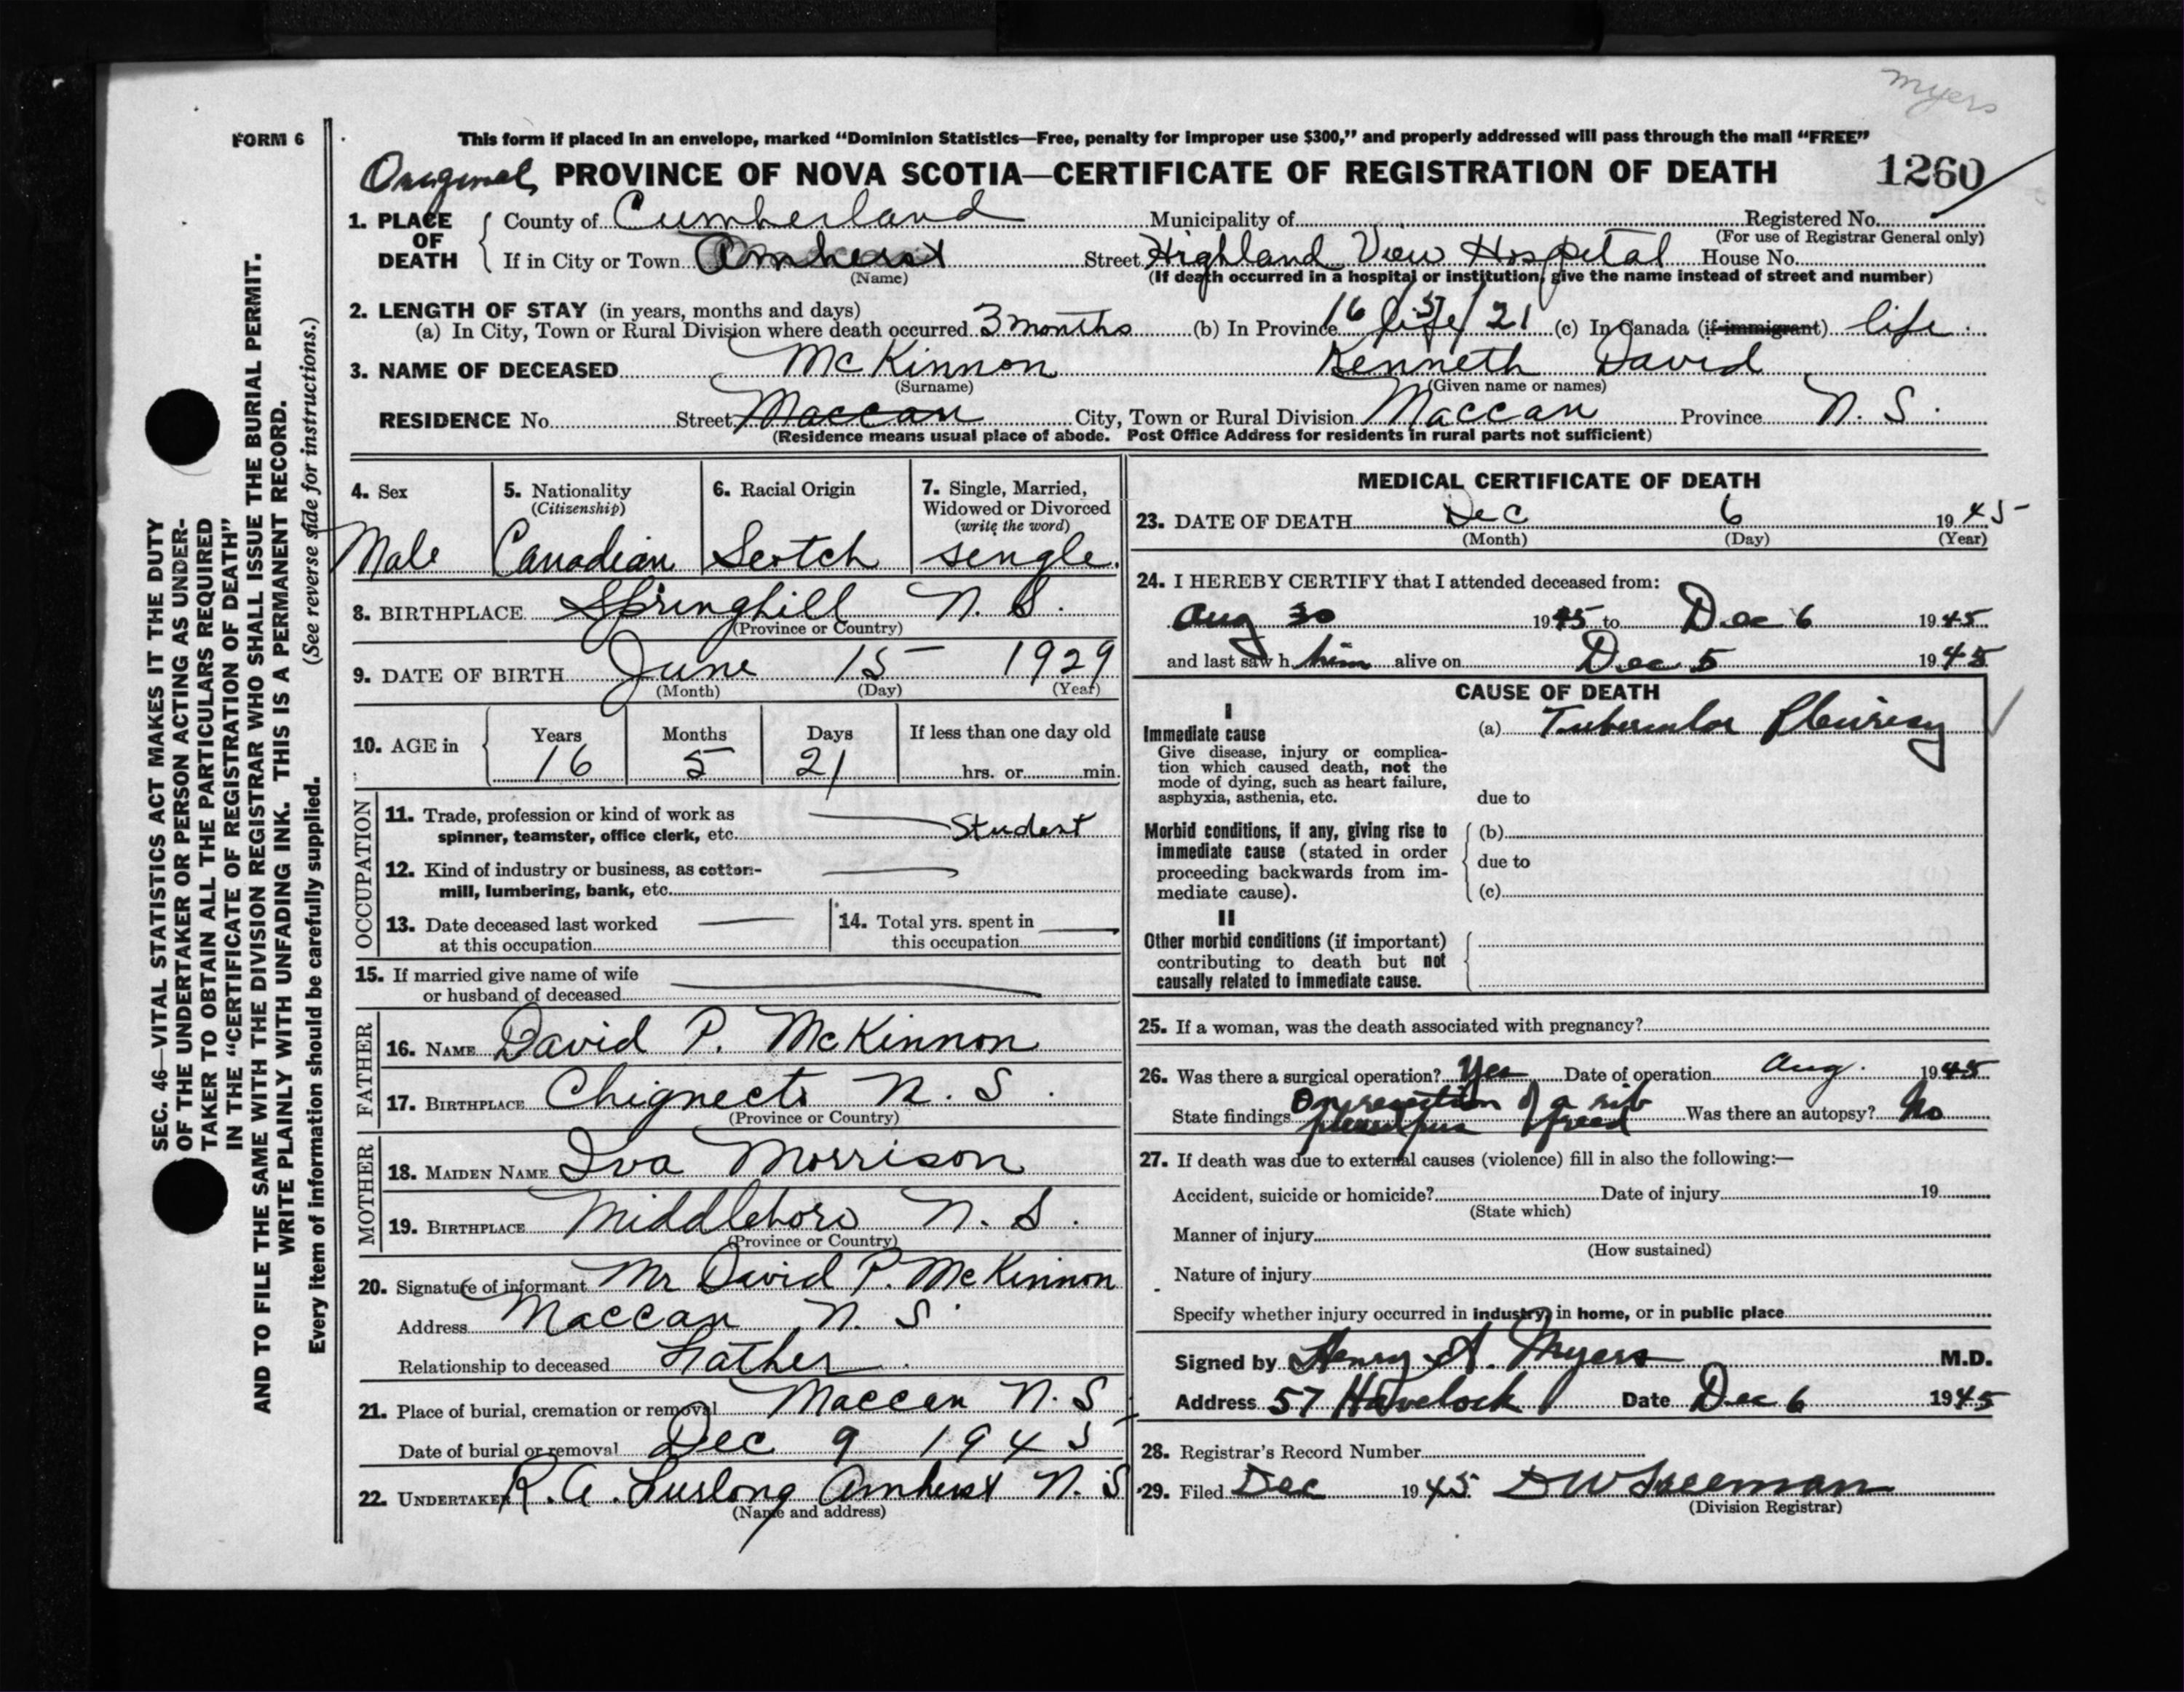 Myers
FORM 6
This form if placed in an envelope, marked "Dominion Statistics—Free, penalty for improper use $300," and properly addressed will pass through the mail "FREE"
Original PROVINCE OF NOVA SCOTIA—CERTIFICATE OF REGISTRATION OF DEATH 1260
1. PLACE OF DEATH County of Cumberland Municipality of Registered No.
(For use of Registrar General only)
If in City or Town Amherst Street Highland View Hospital House No.
(Name) (If death occurred in a hospital or institution, give the name instead of street and number)
2. LENGTH OF STAY (in years, months and days)
(a) In City, Town or Rural Division where death occurred 3 months (b) In Province 16 / 5 / 21 life (c) In Canada (if immigrant) life.
3. NAME OF DECEASED McKinnon Kenneth David
(Surname) (Given name or names)
RESIDENCE No. Street Maccan City, Town or Rural Division Maccan Province N. S.
(Residence means usual place of abode. Post Office Address for residents in rural parts not sufficient)
SEC. 46—VITAL STATISTICS ACT MAKES IT THE DUTY
OF THE UNDERTAKER OR PERSON ACTING AS UNDER-
TAKER TO OBTAIN ALL THE PARTICULARS REQUIRED
IN THE "CERTIFICATE OF REGISTRATION OF DEATH"
AND TO FILE THE SAME WITH THE DIVISION REGISTRAR WHO SHALL ISSUE THE BURIAL PERMIT.
WRITE PLAINLY WITH UNFADING INK. THIS IS A PERMANENT RECORD.
Every item of information should be carefully supplied. (See reverse side for instructions.)
4. Sex
Male
5. Nationality
(Citizenship)
Canadian
6. Racial Origin
Scotch
7. Single, Married,
Widowed or Divorced
(write the word)
single.
8. BIRTHPLACE Springhill N. S.
(Province or Country)
9. DATE OF BIRTH June 15 1929
(Month) (Day) (Year)
10. AGE in Years Months Days If less than one day old
16 5 21 hrs. or min.
OCCUPATION
11. Trade, profession or kind of work as
spinner, teamster, office clerk, etc. Student
12. Kind of industry or business, as cotton-
mill, lumbering, bank, etc.
13. Date deceased last worked
at this occupation
14. Total yrs. spent in
this occupation
15. If married give name of wife
or husband of deceased
FATHER
16. NAME David P. McKinnon
17. BIRTHPLACE Chignecto N. S.
(Province or Country)
MOTHER
18. MAIDEN NAME Iva Morrison
19. BIRTHPLACE Middleboro N. S.
(Province or Country)
20. Signature of informant Mr David P. McKinnon
Address Maccan N. S.
Relationship to deceased Father
21. Place of burial, cremation or removal Maccan N. S
Date of burial or removal Dec 9 1945
22. UNDERTAKER R. A. Furlong Amherst N. S
(Name and address)
MEDICAL CERTIFICATE OF DEATH
23. DATE OF DEATH Dec 6 1945
(Month) (Day) (Year)
24. I HEREBY CERTIFY that I attended deceased from:
Aug 30 1945 to Dec 6 1945
and last saw h him alive on Dec 5 1945
CAUSE OF DEATH
I
Immediate cause
Give disease, injury or complica-
tion which caused death, not the
mode of dying, such as heart failure,
asphyxia, asthenia, etc.
(a) Tubercular Pleurisy
due to
Morbid conditions, if any, giving rise to
immediate cause (stated in order
proceeding backwards from im-
mediate cause).
(b)
due to
(c)
II
Other morbid conditions (if important)
contributing to death but not
causally related to immediate cause.
25. If a woman, was the death associated with pregnancy?
26. Was there a surgical operation? Yes Date of operation Aug. 1945
State findings On resection of a rib Was there an autopsy? No
pus freed
27. If death was due to external causes (violence) fill in also the following:—
Accident, suicide or homicide? Date of injury 19
(State which)
Manner of injury
(How sustained)
Nature of injury
Specify whether injury occurred in industry, in home, or in public place
Signed by Henry A. Myers M.D.
Address 57 Havelock Date Dec 6 1945
28. Registrar's Record Number
29. Filed Dec 1945 D W Freeman
(Division Registrar)